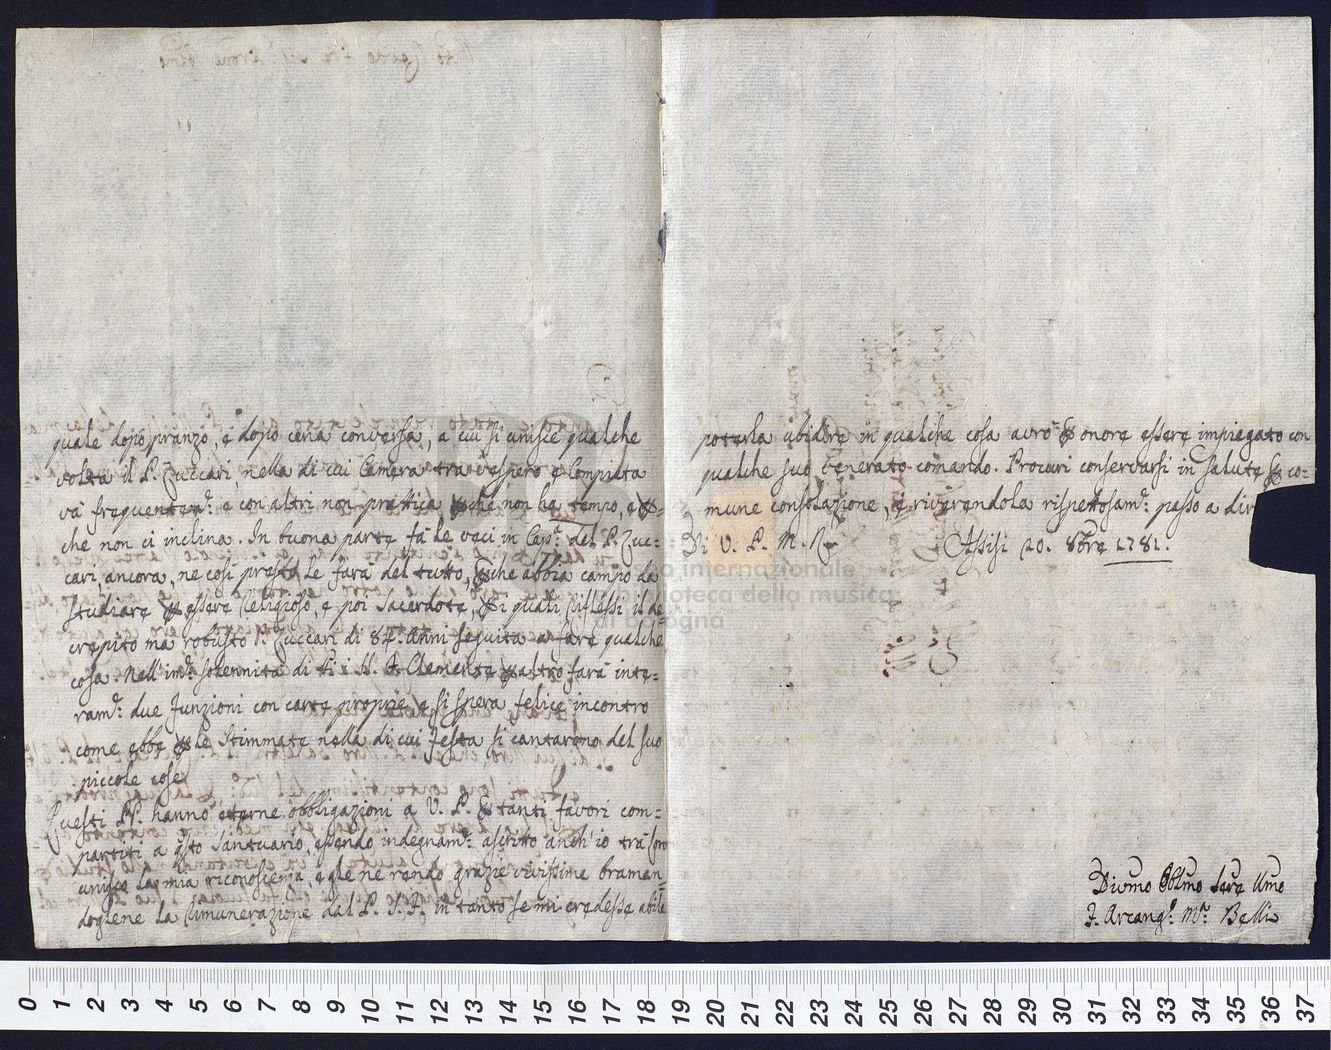 quale dopo pranzo, e dopo cena conversa, a cui si unisce qualche
volta il P. Zuccari nella di cui Camera tra vespero, e Compieta
và frequentem.e e con altri non prattica che non ha tempo, e
che non ci inclina. In buona parte fà le veci in Cap.a del P. Zuc=
cari, ancora, ne così presto le farà del tutto, che abbia campo da
studiare essere Religioso, e poi Sacerdote, i quali riflessi il de
crepito ma robusto P. Zuccari di 82. Anni seguita a fare qualche
cosa. Nell' im.e solennità di N. S. Clemente altro farà inte=
ram.e due funzioni con carte proprie, e si spera felice incontro
come ebbe le Stimmate nella di cui festa si cantarono del suo
piccole cose
Questi PP. hanno eterne obbligazioni a V. P. tanti favori com=
partiti a qsto Santuario, essendo indegnam.e ascritto anch' io trà
unisco la mia riconoscenza, e gle ne rendo grazie vivissime braman=
dogliene la rimunerazione dal P. S. P. in tanto se mi credesse abile
poterla ubidire in qualche cosa avrò onore essere impiegato con
qualche suo venerato comando. Procuri conservarsi in salute co=
mune consolazione, e riverendola rispettosam.e passo a dir
Di V. P. M. R. Assisi 20. 8bre 1781.
Divmo Obblmo Serv Umo
F. Arcang.o M.a Belli
internazionale
biblioteca della musica
di bologna
0 1 2 3 4 5 6 7 8 9 10 11 12 13 14 15 16 17 18 19 20 21 22 23 24 25 26 27 28 29 30 31 32 33 34 35 36 37